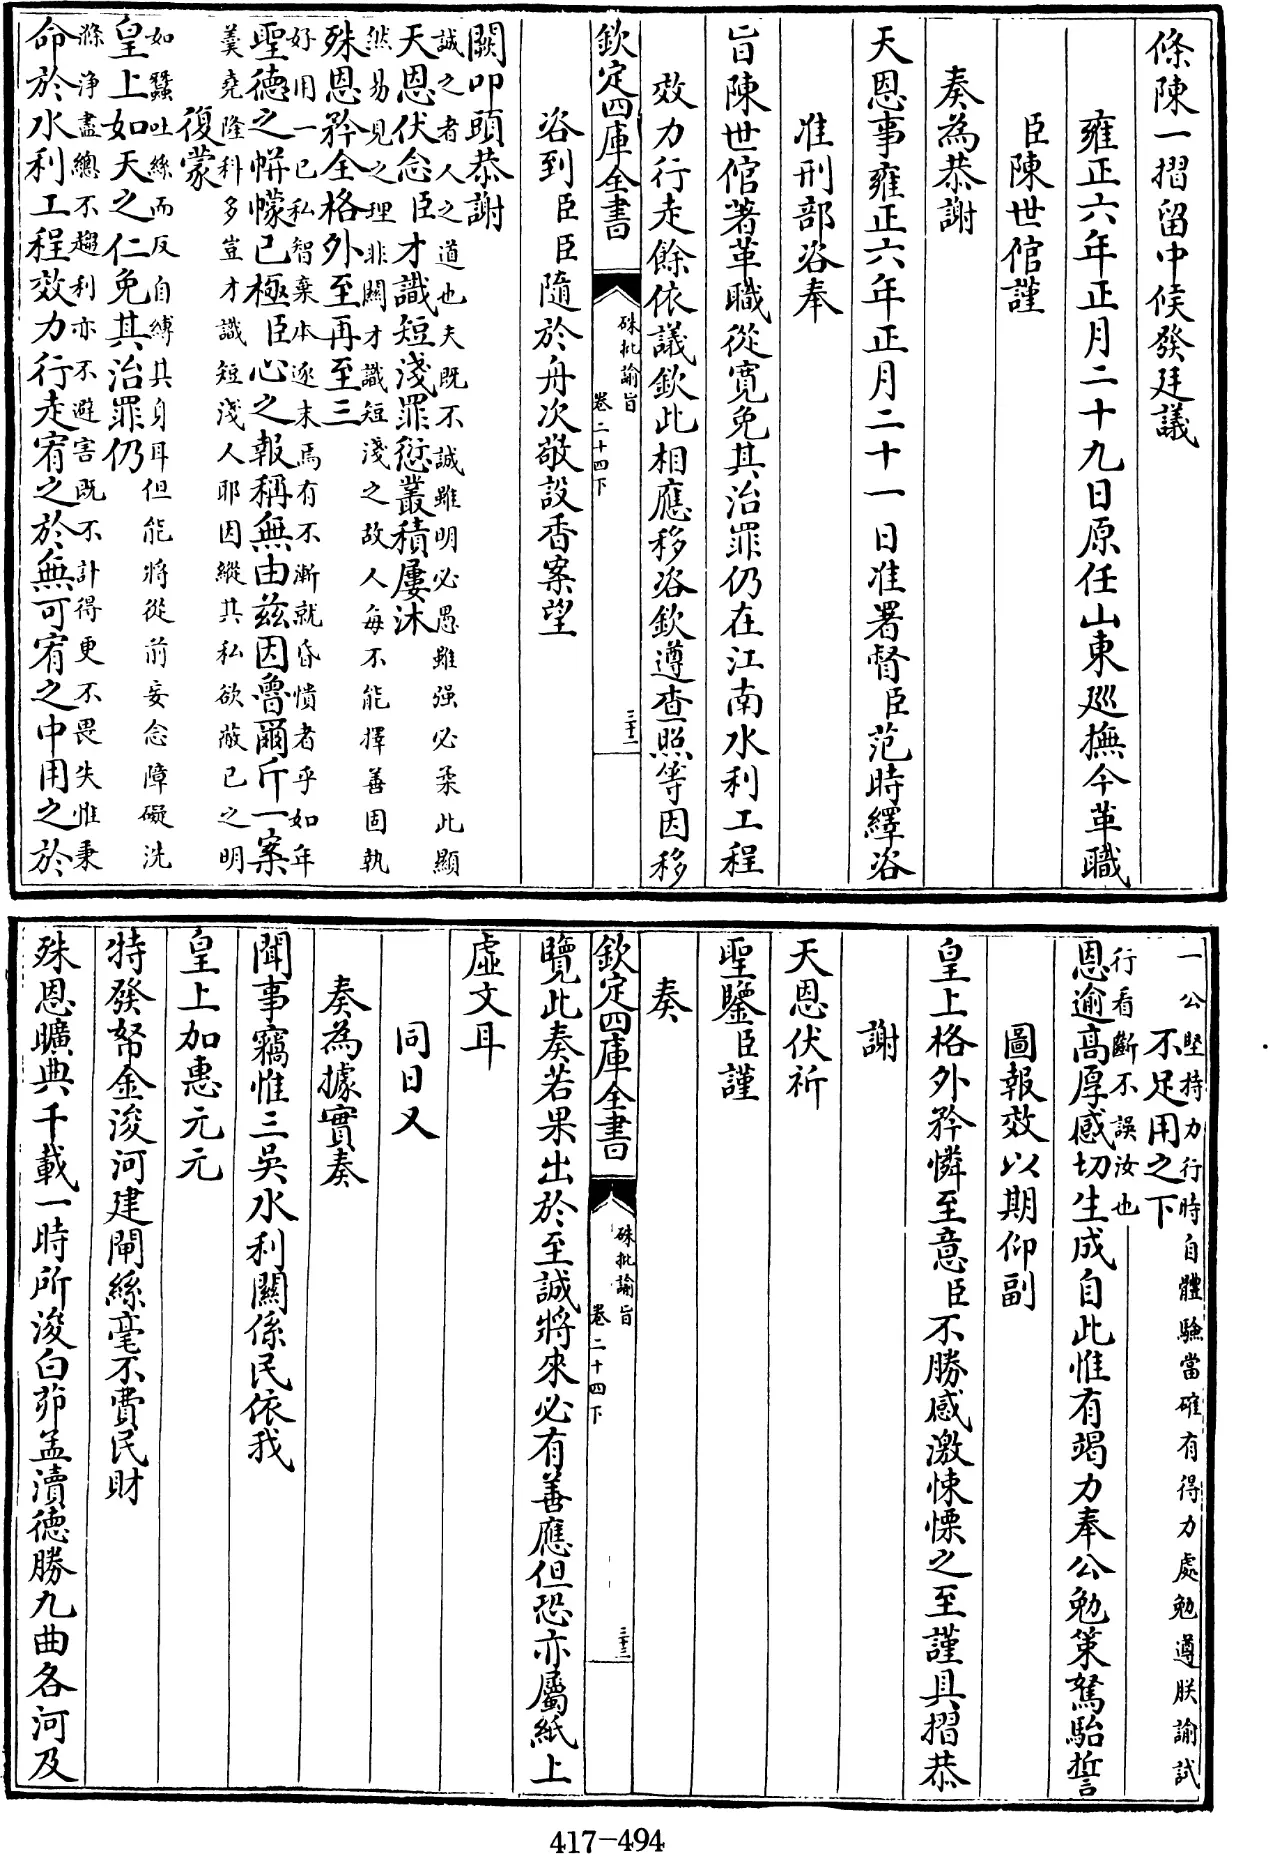 條陳一摺留中候發廷議
雍正六年正月二十九日原任山東巡撫今革職
臣陳世倌謹
奏為恭謝
天恩事雍正六年正月二十一日准署督臣范時繹咨
准刑部咨奉
旨陳世倌著革職從寬免其治罪仍在江南水利工程
效力行走餘依議欽此相應移咨欽遵查照等因移
欽定四庫全書
硃批諭旨
卷二十四下
三十二
咨到臣臣隨於舟次敬設香案望
闕叩頭恭謝
誠之者人之道也夫既不誠雖明必愚雖强必柔此顯
天恩伏念臣才識短淺罪愆叢積屢沐
然易見之理非關才識短淺之故人每不能擇善固執
殊恩矜全格外至再至三
好用一已私智棄本逐末焉有不漸就昏憒者乎如年
聖德之帡幪已極臣心之報稱無由兹因魯爾斤一案
羹堯隆科多豈才識短淺人耶因縱其私欲蔽已之明
復蒙
如蠶吐絲而反自縛其身耳但能將從前妄念障礙洗
皇上如天之仁免其治罪仍
滌淨盡總不趨利亦不避害既不計得更不畏失惟秉
命於水利工程效力行走宥之於無可宥之中用之於
一公堅持力行時自體驗當確有得力處勉遵朕諭試
不足用之下
行看斷不誤汝也
恩逾高厚感切生成自此惟有竭力奉公勉策駑駘誓
圖報效以期仰副
皇上格外矜憐至意臣不勝感激悚慄之至謹具摺恭
謝
天恩伏祈
聖鑒臣謹
奏
欽定四庫全書
硃批諭旨
卷二十四下
三十三
覽此奏若果出於至誠將來必有善應但恐亦屬紙上
虛文耳
同日又
奏為據實奏
聞事竊惟三吳水利關係民依我
皇上加惠元元
特發帑金浚河建閘絲毫不費民財
殊恩曠典千載一時所浚白茆孟瀆德勝九曲各河及
417-494